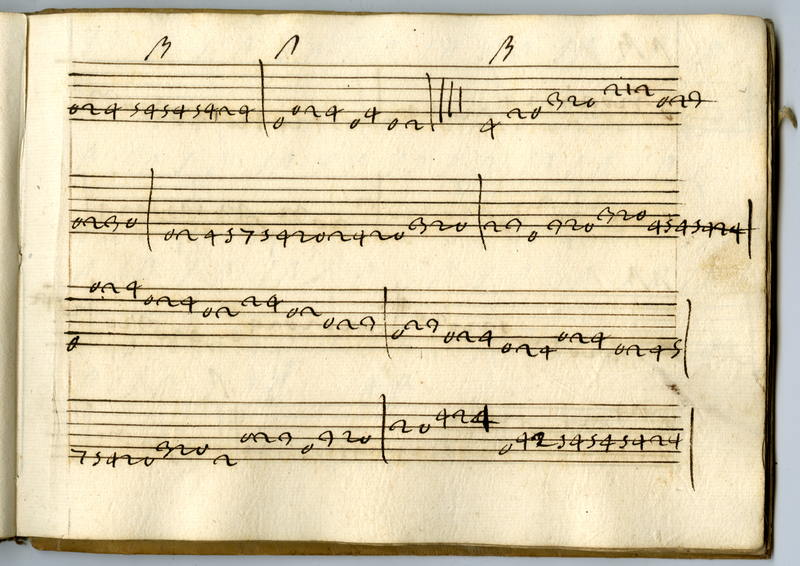 02454545424 | 0 024 0 4 02 |||| 4 20 320 212 024
0230 | 02457542024 20 320 | 24 0 420 320 45454 24
0 024 024 02 24 02 024 | 024 024 024 024 0245 |
75420 320 2 024 0 420 | 20 424 0 4 54545424 |